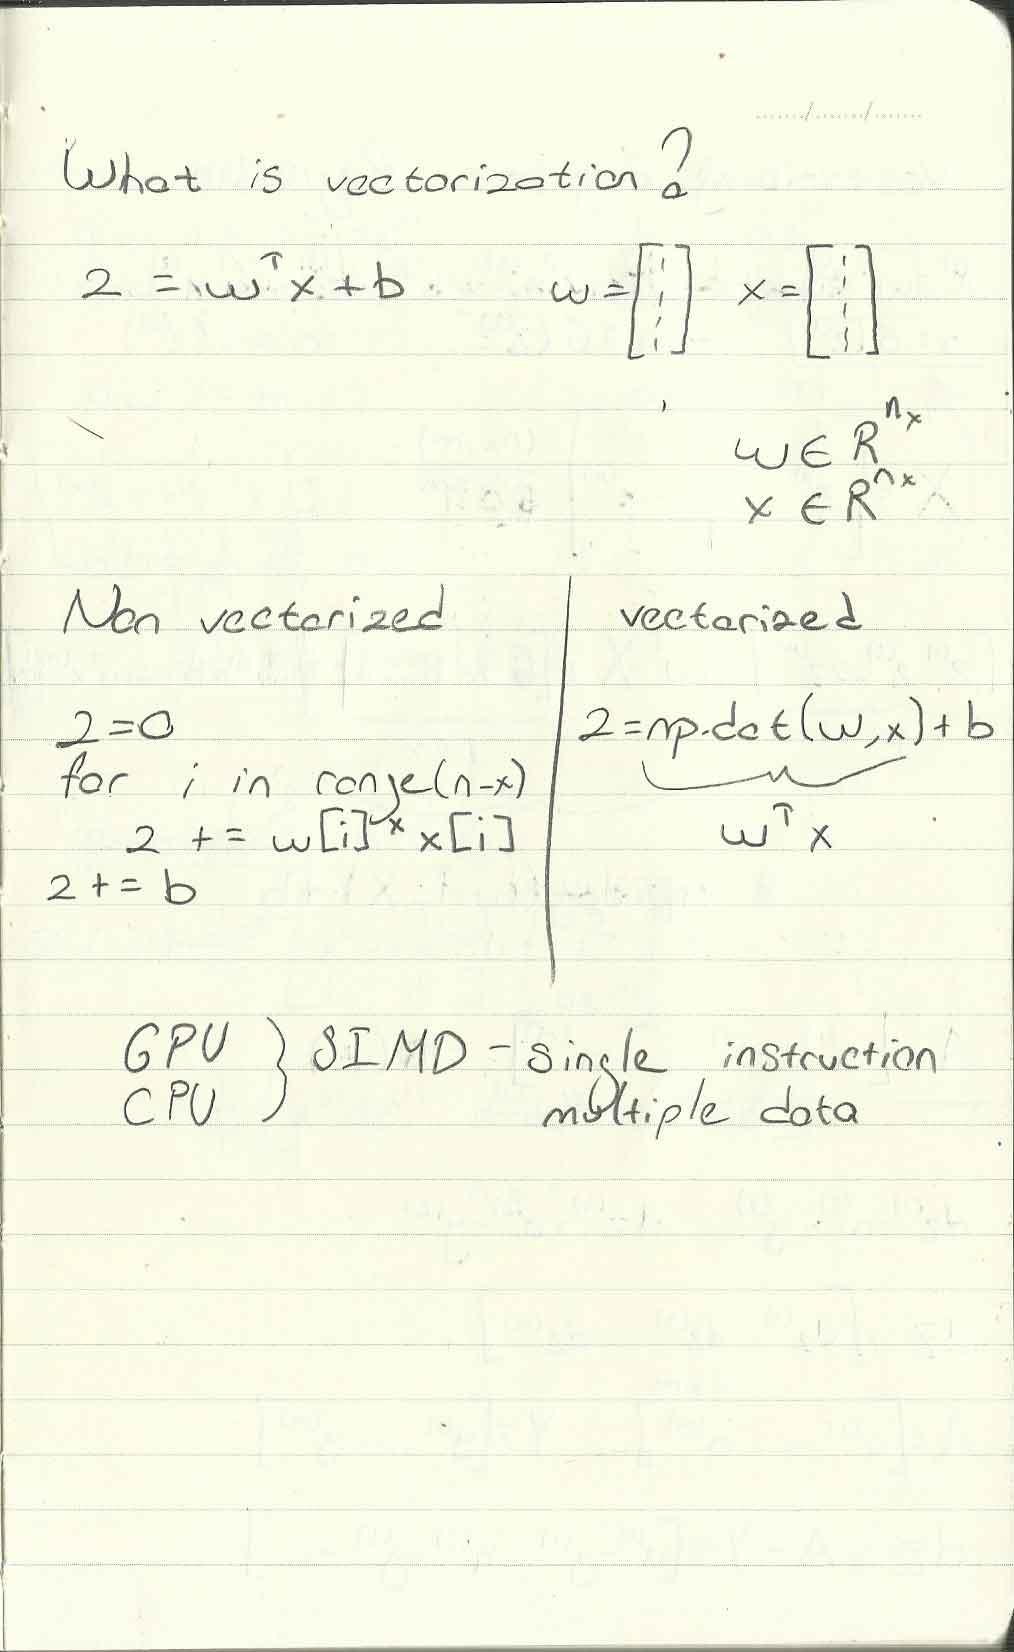 What is vectorization?
z = wᵀx + b   w = [ ]   x = [ ]
w ∈ R^nx
x ∈ R^nx
Non vectorized
z=0
for i in range(n-x)
z += w[i] * x[i]
z += b
vectorized
z=np.dot(w,x)+b
wᵀx
GPU
CPU } SIMD - single instruction
multiple data